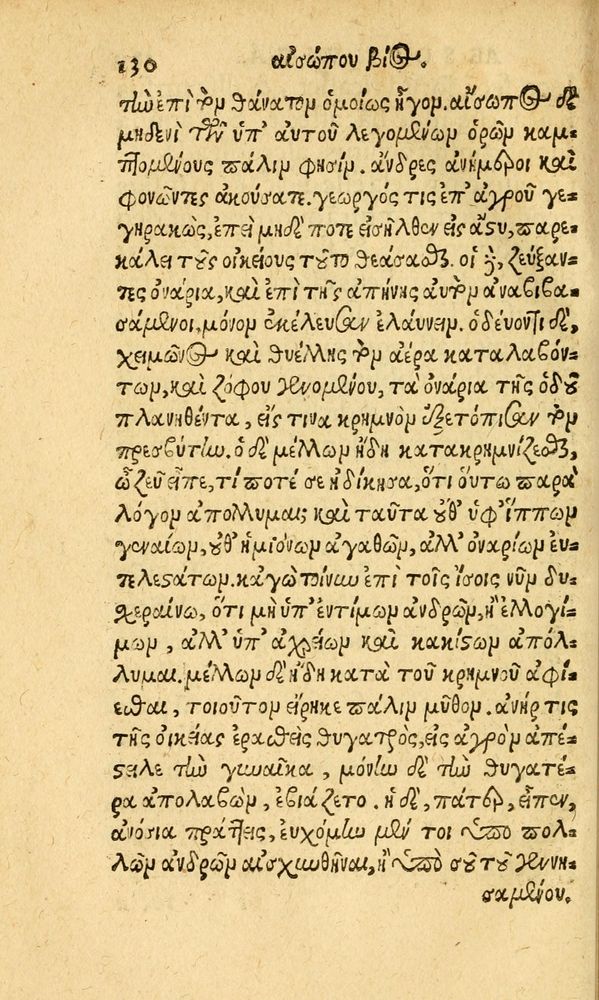 130 αἰσώπου βίος.
τὴν ἐπὶ τὸν θάνατον ὁμοίως ἦγον. αἴσωπος δὲ
μηδενὶ τῶν ὑπ' αὐτοῦ λεγομένων ὁρῶν καμ-
πτομένους πάλιν φησίν. ἄνδρες ἀνήμεροι καὶ
φονῶντες ἀκούσατε. γεωργός τις ἐπ' ἀγροῦ γε-
γηρακὼς, ἐπεὶ μηδέ ποτε εἰσῆλθεν εἰς ἄστυ, παρε-
κάλει τοὺς οἰκείους τοῦτο θεάσασθαι. οἱ δὲ, ζεύξαν-
τες ὀνάρια, καὶ ἐπὶ τῆς ἀπήνης αὐτὸν ἀναβιβα-
σάμενοι, μόνον ἐκέλευσαν ἐλαύνειν. ὁδεύοντι δὲ,
χειμῶνος καὶ θυέλλης τὸν ἀέρα καταλαβόν-
των, καὶ ζόφου γενομένου, τὰ ὀνάρια τῆς ὁδοῦ
πλανηθέντα, εἴς τινα κρημνὸν ἐξετόπισαν τὸν
πρεσβύτην. ὁ δὲ μέλλων ἤδη κατακρημνίζεσθαι,
ὦ ζεῦ εἶπε, τί ποτέ σε ἠδίκησα, ὅτι οὕτω παρὰ
λόγον ἀπόλλυμαι; καὶ ταῦτα οὔθ' ὑφ' ἵππων
γενναίων, οὔθ' ἡμιόνων ἀγαθῶν, ἀλλ' ὀναρίων εὐ-
τελεστάτων. κἀγὼ τοίνυν ἐπὶ τοῖς ἴσοις νῦν δυ-
χεραίνω, ὅτι μὴ ὑπ' ἐντίμων ἀνδρῶν, ἢ ἐλλογί-
μων, ἀλλ' ὑπ' ἀχρείων καὶ κακίστων ἀπόλ-
λυμαι. μέλλων δὲ ἤδη κατὰ τοῦ κρημνοῦ ἀφί-
εσθαι, τοιοῦτον εἴρηκε πάλιν μῦθον. ἀνήρ τις
τῆς οἰκείας ἐρασθεὶς θυγατρὸς, εἰς ἀγρὸν ἀπέ-
στειλε τὴν γυναῖκα, μόνην δὲ τὴν θυγατέ-
ρα ἀπολαβὼν, ἐβιάζετο. ἡ δὲ, πάτερ, εἶπεν,
ἀνόσια πράττεις, εὐχόμην μέν τοι ὑπὸ πολ-
λῶν ἀνδρῶν αἰσχυνθῆναι, ἢ ὑπὸ σοῦ τοῦ γεννη-
σαμένου.